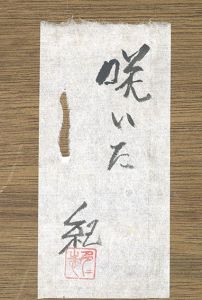 咲いた
紀